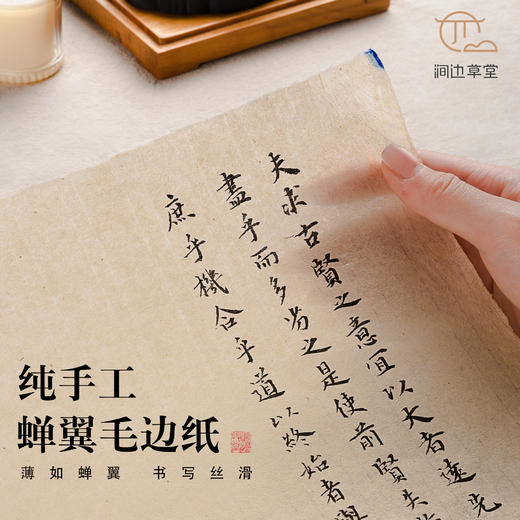 涧边草堂
夫求古賢之意宜以大者遠先
盡乎而多之是使前賢失
庶乎機合乎道以終始者與
纯手工
蝉翼毛边纸
薄如蝉翼 书写丝滑